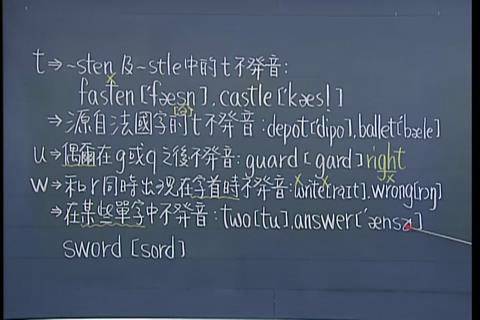 t⇒~sten及~stle中的t不發音:
fasten['fæsn], castle['kæsl]
⇒源自法國字的t不發音:depot['dipo], ballet['bæle]
u⇒偶爾在g或q之後不發音:guard[gard] right
w⇒和r同時出現在字首時不發音:write[raɪt], wrong[rɔŋ]
⇒在某些單字中不發音:two[tu], answer['ænsɚ]
sword [sord]